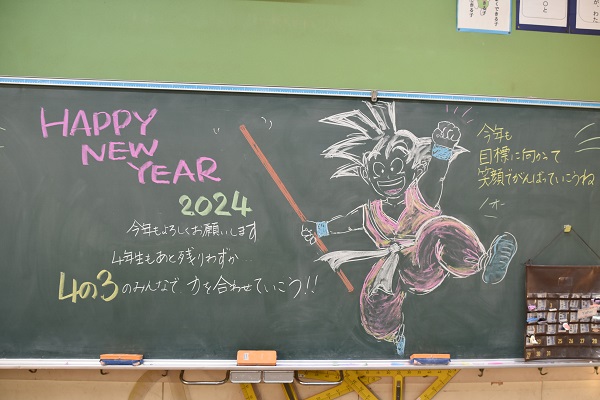 HAPPY
NEW
YEAR
2024
今年もよろしくお願いします
4年生もあと残りわずか…
4の3のみんなで 力を合わせていこう!!
今年も
目標に向かって
笑顔でがんばっていこうね